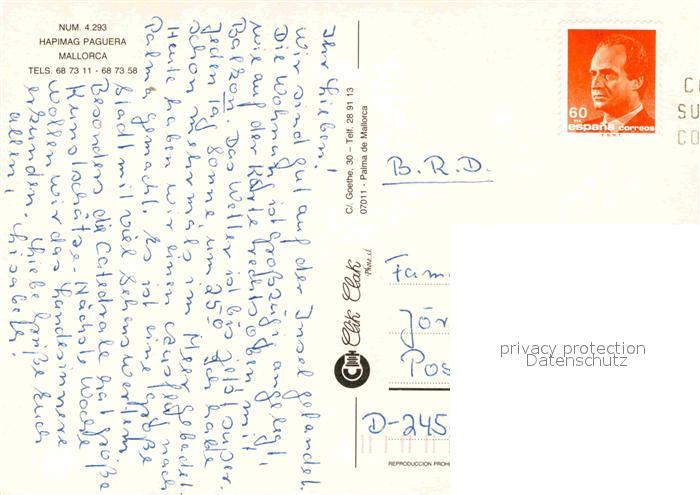 NUM. 4.293
HAPIMAG PAGUERA
MALLORCA
TELS. 68 73 11 - 68 73 58
Ihr Lieben!
Wir sind gut auf der Insel gelandet.
Die Wohnung ist großzügig angelegt,
wie auf der Karte rechts oben mit
Balkon. Das Wetter ist bis jetzt super.
Jeden Tag Sonne, um 25° Ich habe
schon mehrmals im Meer gebadet.
Heute haben wir einen Ausflug nach
Palma gemacht. Es ist eine große
Stadt mit viel Sehenswertem.
Besonders die Catedrale hat große
Kunstschätze. Nächste Woche
wollen wir das Landesinnere
erkunden. Liebe Grüße Euch
allen, Lisabeth.
C/. Goethe, 30 - Telf. 28 91 13
07011 - Palma de Mallorca
Clik Clak
Phot. s.l.
60
PTA
españa correos
F.N.M.T.
C
SU
CO
B.R.D.
Fam
Jör
Pos
D-245
REPRODUCCION PROHI
privacy protection
Datenschutz